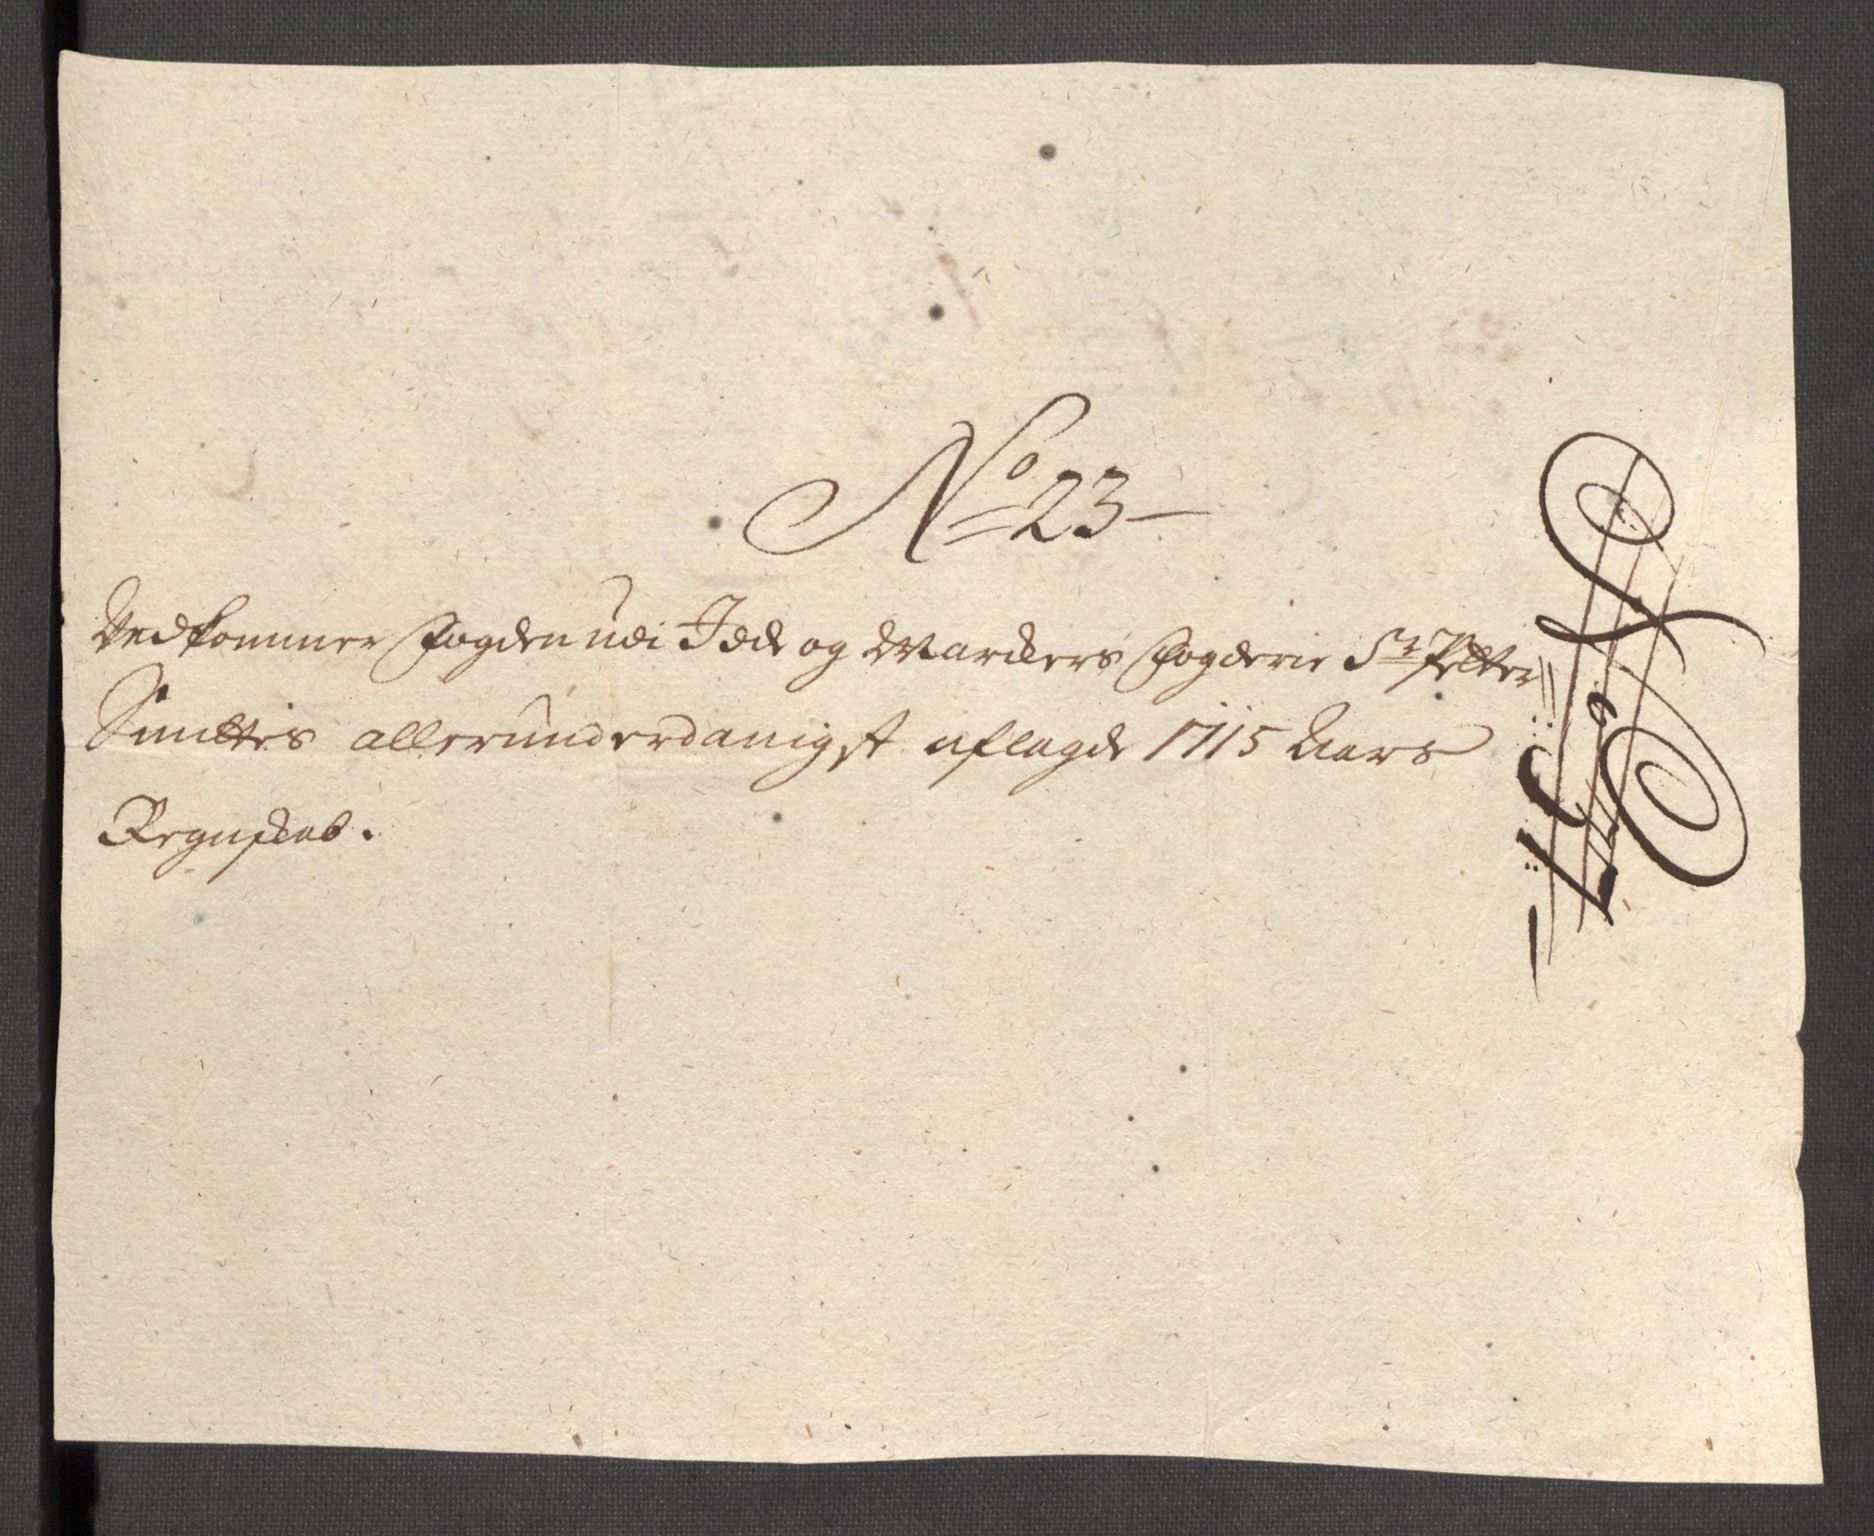 No 23
Vedkommer Fogden udi Idde og Marckers Fogderie Sr Petter
allerunderdanigst aflagde 1715 Aars
Regnskab.